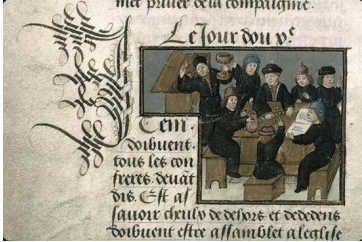 mer priuer de la compaignie.
Le Jour dou ve.
Tem
doibuent
tous les con
freres. deuāt
dis. Est as
sauoir cheuly de dehors et dededens
doibuent estre assamblet a leglise